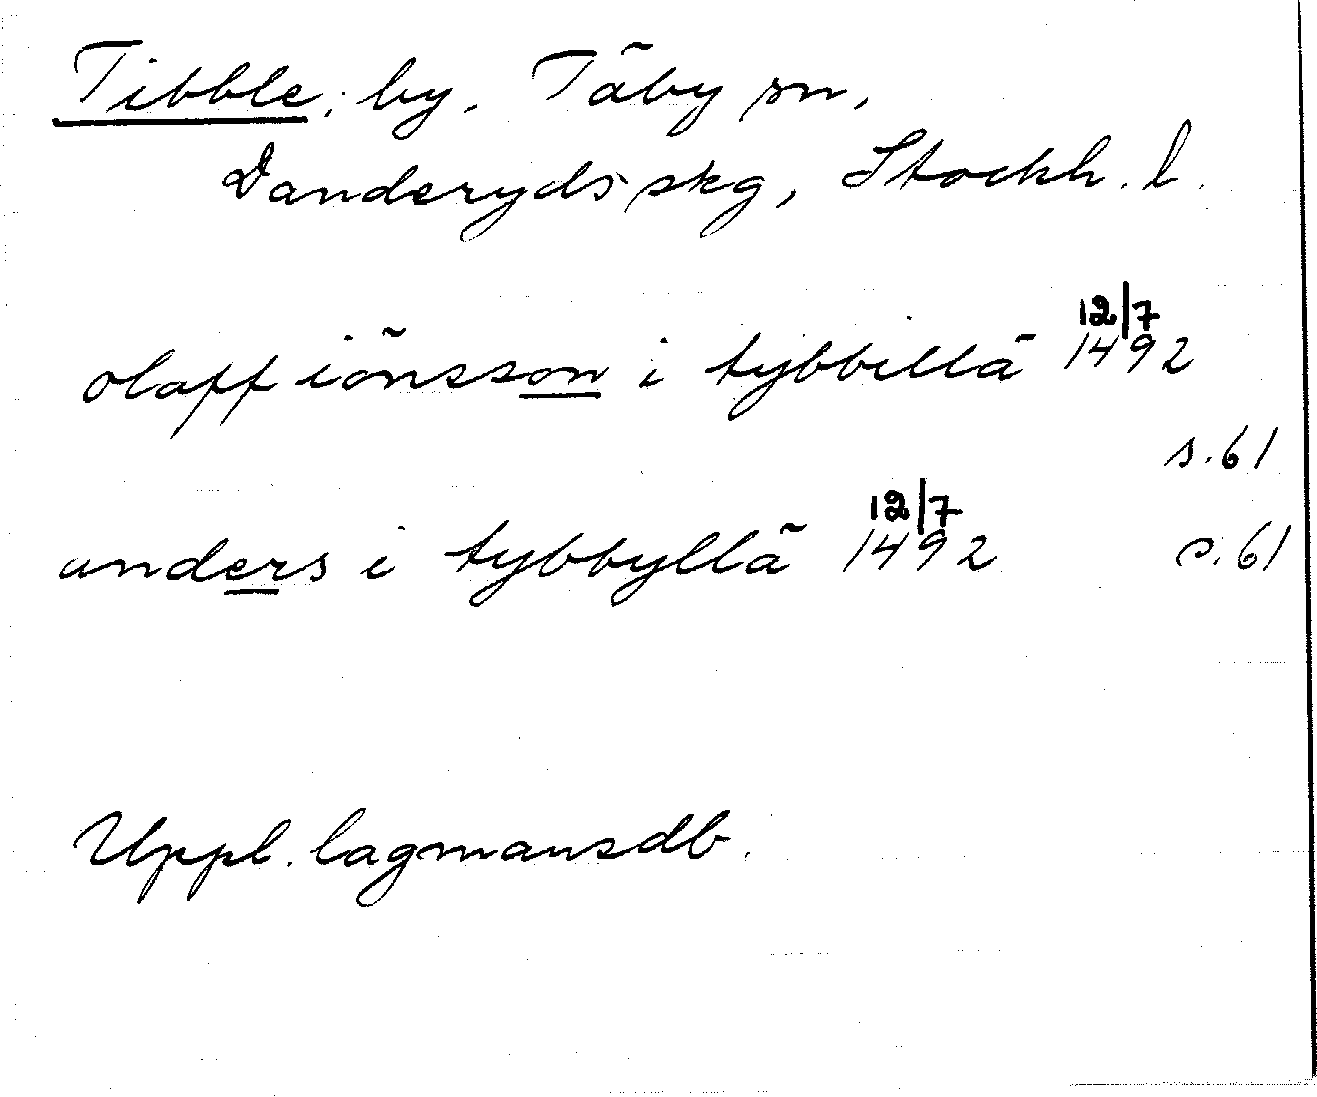 Tibble, by. Täby sn,
Danderyds skg, Stockh. l.
olaff iönsson i tybbillä 12/7 1492
s. 61
anders i tybbyllä 12/7 1492 s. 61
Uppl. lagmansdb.